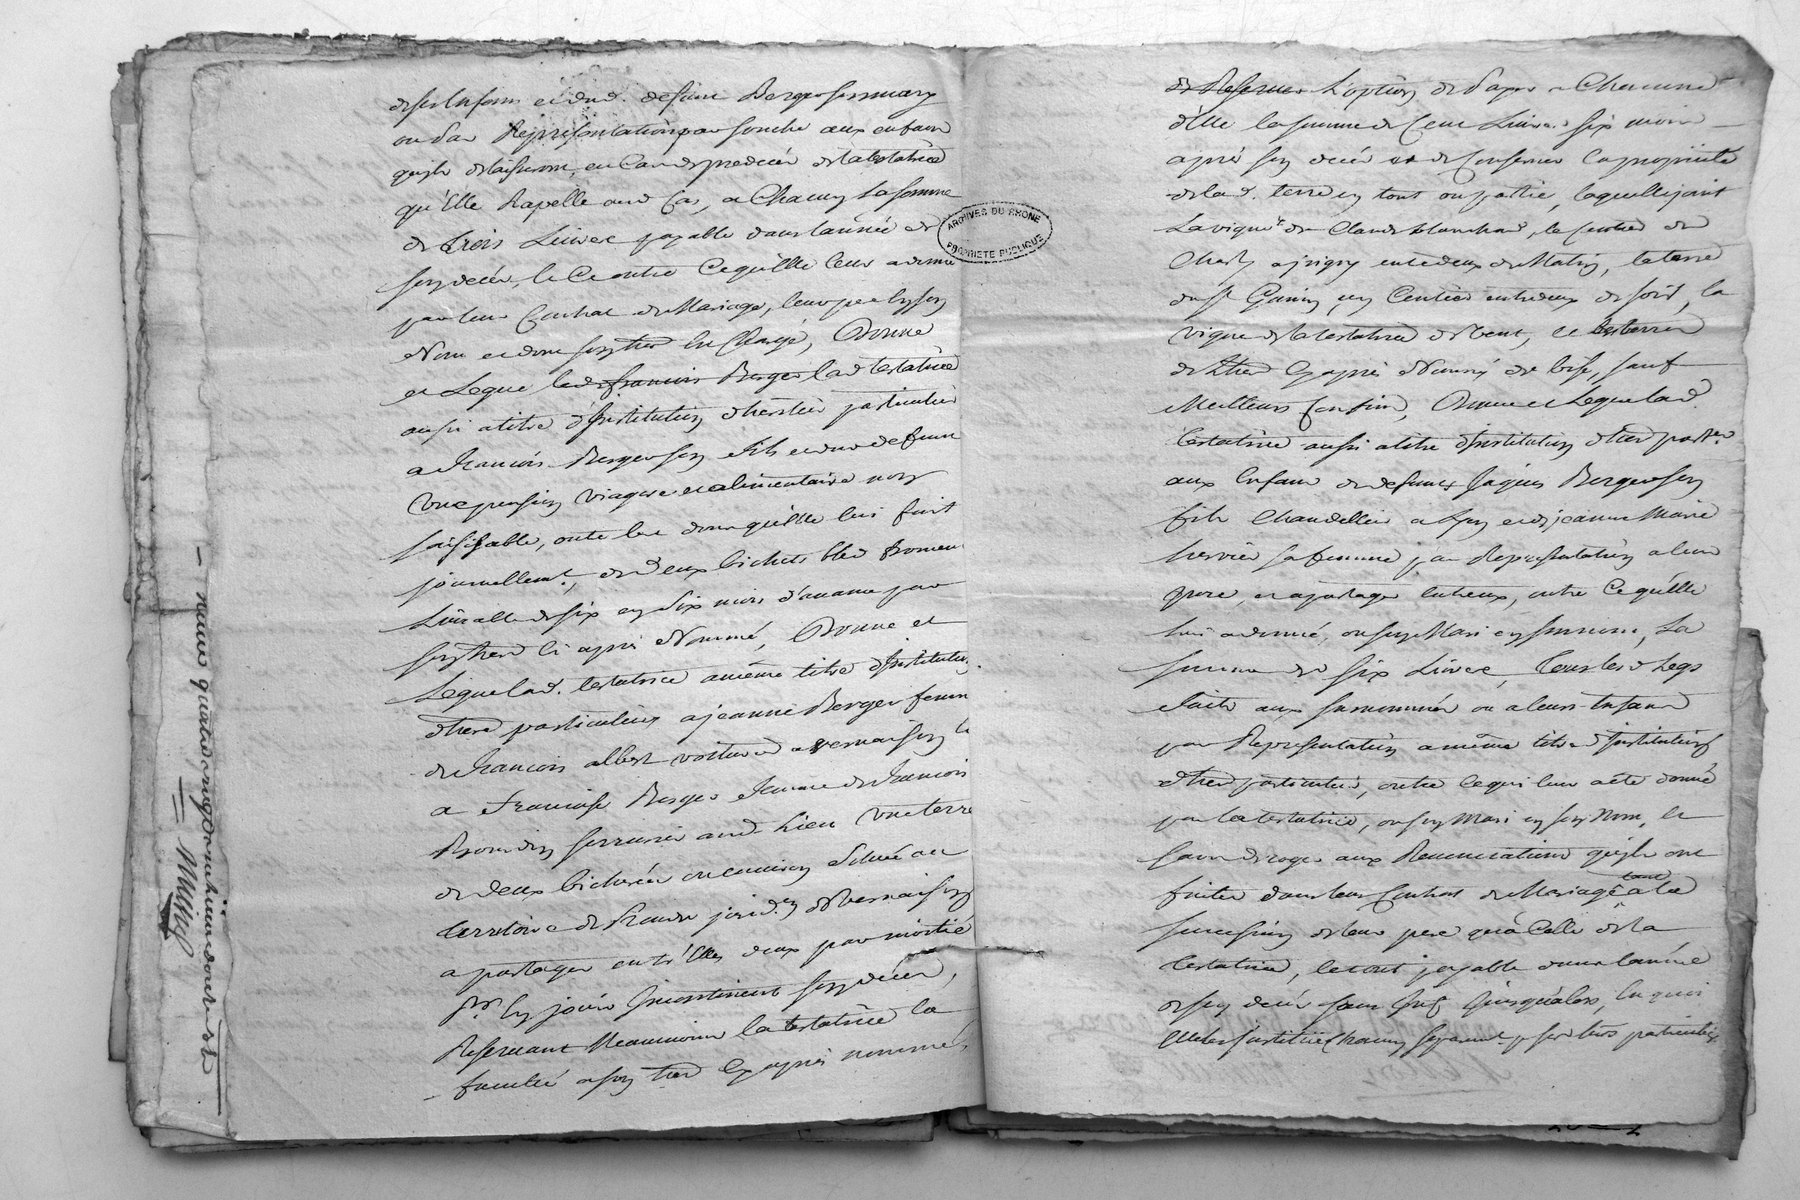 de ses enfans et dud. defunt Berger son mary
ou par Representation par souche aux enfans
qu'ils delaisseront, en Cas de predecés de la testatrice
qu'Elle Rapelle aud Cas, a Chacun la somme
de trois Livres payable dans l'année de
son decés, et Ce outre Ce qu'Elle leur a donné
par leur Contrat de Mariage,
Donne
et Legue led. françois Berger lad testatrice
aussi a titre d'Institution d'heritier particulier
a françois Berger son fils et dud defunt
une pension viagere et alimentaire non
saisissable, outre les dons qu'elle lui fait
journellemt., de deux bichets bled froment
Livrable de six en six mois d'avance par
son herer ci après Nommé, Donne et
Legue lad. testatrice a même titre d'Institution
d'herer particuliere a jeanne Berger femme
de françois albert voiturier a vernaison &
a françoise Berger femme de françois
serrurier aud Lieu une terre
de deux bicherées ou environ Située au
territoire de jurid.on de Vernaison
a partager entr'Elles deux par moitié
pr En jouir Incontinent son decés,
Reservant Neanmoins la testatrice la
faculté a son herer Cy après nommé,
de Reserver L'option de Payer a Chacune
d'Elle la somme de Cent Livres six mois
après son decés et de Conserver la proprieté
de lad. terre en tout ou partie, laquelle joint
La vigne de Claude blanchard, le sentier de
Charly a jrigny entredeux de Matin, la terre
du sr un sentier entredeux de soir, la
vigne de la testatrice de Vent, et les terres
de l'herer Cy après Nommé de bise, sauf
Meilleurs Confins, Donne et Legue lad.
testatrice aussi a titre d'Institution d'herer parter
aux Enfans de defunts Jâques Berger son
fils Chandellier a Lyon et de jeanne Marie
sa femme par Representation a leur
pere, et a partager entreux, outre Ce qu'Elle
lui a donné, ou son Mari en son nom, La
somme de six Livres, Tous les d Legs
faits aux surnommés ou a leurs Enfans
par Representation a même titre d'Institution
d'herer particuliers, outre Ce qui leur a été donné
par la testatrice, ou son Mari en son Nom, et
sans deroger aux Renonciations qu'ils ont
faites dans leurs Contrat de Mariage tant a la
succession de leur pere qu'à Celle de la
testatrice, le tout payable dans l'année
de son decés sans Int. jusqu'alors, En quoi
Elle les Institüe Chacun ses herers particuliers
ARCHIVES DU RHONE
PROPRIETE PUBLIQUE